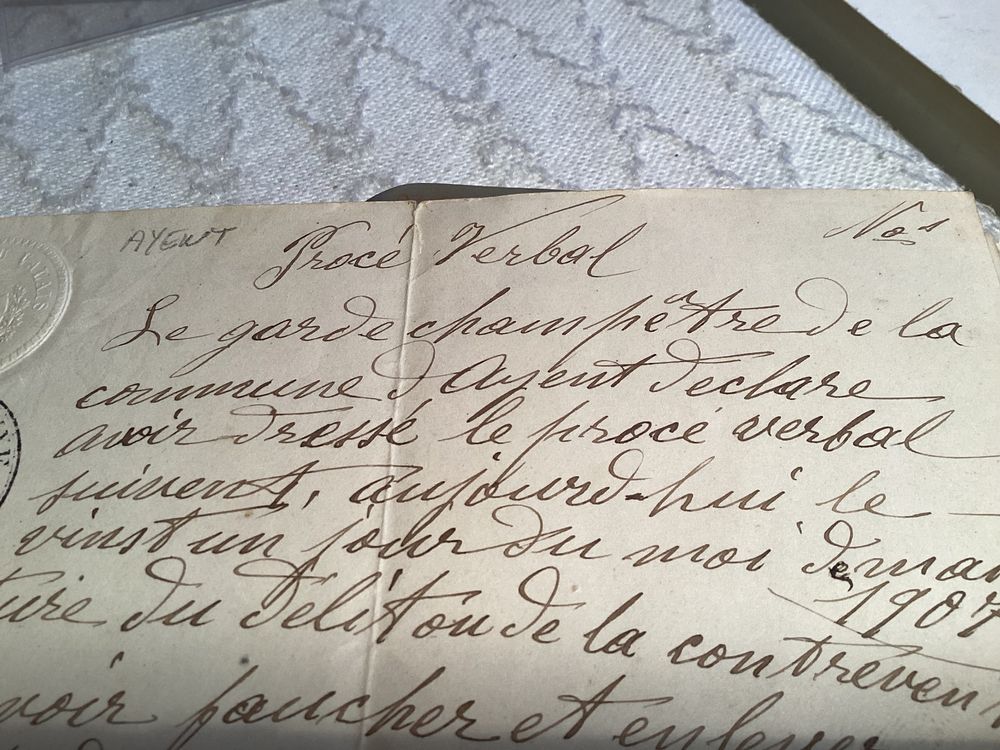 AYENT
Procé Verbal
No 1
Le garde champêtre de la
commune d'Ayent declare
avoir dressé le procé verbal
suivent, aujourd-hui le
vinst un jour du moi de mar
1907
ure du délit ou de la contreven
voir faucher et enlever